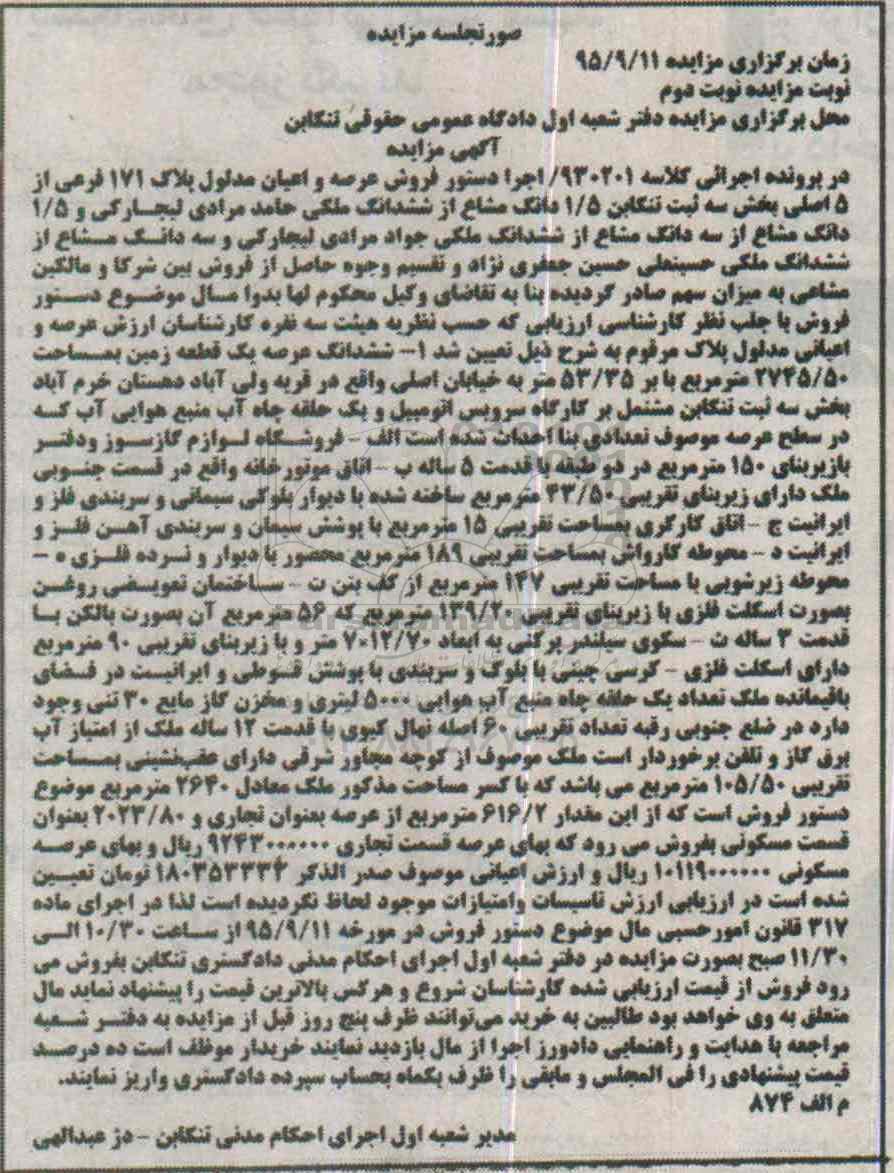 صورتجلسه مزایده
زمان برگزاری مزایده ۹۵/۹/۱۱
نوبت مزایده نوبت دوم
محل برگزاری مزایده دفتر شعبه اول دادگاه عمومی حقوقی تنکابن
آگهی مزایده
در پرونده اجرائی کلاسه ۹۳۰۲۰۱/ اجرا دستور فروش عرصه و اعیان مدلول پلاک ۱۷۱ فرعی از
۵ اصلی بخش سه ثبت تنکابن ۱/۵ دانگ مشاع از ششدانگ ملکی حامد مرادی لیجارکی و ۱/۵
دانگ مشاع از سه دانگ مشاع از ششدانگ ملکی جواد مرادی لیجارکی و سه دانگ مشاع از
ششدانگ ملکی حسینعلی حسین جعفری نژاد و تقسیم وجوه حاصل از فروش بین شرکا و مالکین
مشاعی به میزان سهم صادر گردیده بنا به تقاضای وکیل محکوم لها بدوا مال موضوع دستور
فروش با جلب نظر کارشناسی ارزیابی که حسب نظریه هیئت سه نفره کارشناسان ارزش عرصه و
اعیانی مدلول پلاک مرقوم به شرح ذیل تعیین شد ۱- ششدانگ عرصه یک قطعه زمین بمساحت
۲۷۴۵/۵۰ مترمربع با بر ۵۳/۳۵ متر به خیابان اصلی واقع در قریه ولی آباد دهستان خرم آباد
بخش سه ثبت تنکابن مشتمل بر کارگاه سرویس اتومبیل و یک حلقه چاه آب منبع هوایی آب که
در سطح عرصه موصوف تعدادی بنا احداث شده است الف - فروشگاه لوازم گازسوز ودفتر
بازیربنای ۱۵۰ مترمربع در دو طبقه با قدمت ۵ ساله ب - اتاق موتورخانه واقع در قسمت جنوبی
ملک دارای زیربنای تقریبی ۴۳/۵۰ مترمربع ساخته شده با دیوار بلوکی سیمانی و سربندی فلز و
ایرانیت ج - اتاق کارگری بمساحت تقریبی ۱۵ مترمربع با پوشش سیمان و سربندی آهن فلز و
ایرانیت د - محوطه کارواش بمساحت تقریبی ۱۸۹ مترمربع محصور با دیوار و نرده فلزی ه -
محوطه زیرشویی با مساحت تقریبی ۱۴۷ مترمربع از کف بتن ت - ساختمان تعویضی روغن
بصورت اسکلت فلزی با زیربنای تقریبی ۱۳۹/۲۰ مترمربع که ۵۶ مترمربع آن بصورت بالکن با
قدمت ۳ ساله ث - سکوی سیلندر پرکنی به ابعاد ۱۲/۷۰×۷ متر و با زیربنای تقریبی ۹۰ مترمربع
دارای اسکلت فلزی - کرسی چینی با بلوک و سربندی با پوشش قوطی و ایرانیت در فضای
باقیمانده ملک تعداد یک حلقه چاه منبع آب هوایی ۵۰۰۰ لیتری و مخزن گاز مایع ۳۰ تنی وجود
دارد در ضلع جنوبی رقبه تعداد تقریبی ۶۰ اصله نهال کیوی با قدمت ۱۲ ساله ملک از امتیاز آب
برق گاز و تلفن برخوردار است ملک موصوف از کوچه مجاور شرقی دارای عقب‌نشینی بمساحت
تقریبی ۱۰۵/۵۰ مترمربع می باشد که با کسر مساحت مذکور ملک معادل ۲۶۴۰ مترمربع موضوع
دستور فروش است که از این مقدار ۶۱۶/۲ مترمربع از عرصه بعنوان تجاری و ۲۰۲۳/۸۰ بعنوان
قسمت مسکونی بفروش می رود که بهای عرصه قسمت تجاری ۹۲۴۳۰۰۰۰۰۰ ریال و بهای عرصه
مسکونی ۱۰۱۱۹۰۰۰۰۰۰ ریال و ارزش اعیانی موصوف صدر الذکر ۱۸۰۳۵۳۳۳۳ تومان تعیین
شده است در ارزیابی ارزش تاسیسات وامتیازات موجود لحاظ نگردیده است لذا در اجرای ماده
۳۱۷ قانون امورحسبی مال موضوع دستور فروش در مورخه ۹۵/۹/۱۱ از ساعت ۱۰/۳۰ الی
۱۱/۳۰ صبح بصورت مزایده در دفتر شعبه اول اجرای احکام مدنی دادگستری تنکابن بفروش می
رود فروش از قیمت ارزیابی شده کارشناسان شروع و هرکس بالاترین قیمت را پیشنهاد نماید مال
متعلق به وی خواهد بود طالبین به خرید می‌توانند ظرف پنج روز قبل از مزایده به دفتر شعبه
مراجعه با هدایت و راهنمایی دادورز اجرا از مال بازدید نمایند خریدار موظف است ده درصد
قیمت پیشنهادی را فی المجلس و مابقی را ظرف یکماه بحساب سپرده دادگستری واریز نمایند.
م الف ۸۷۴
مدیر شعبه اول اجرای احکام مدنی تنکابن - دژ عبدالهی